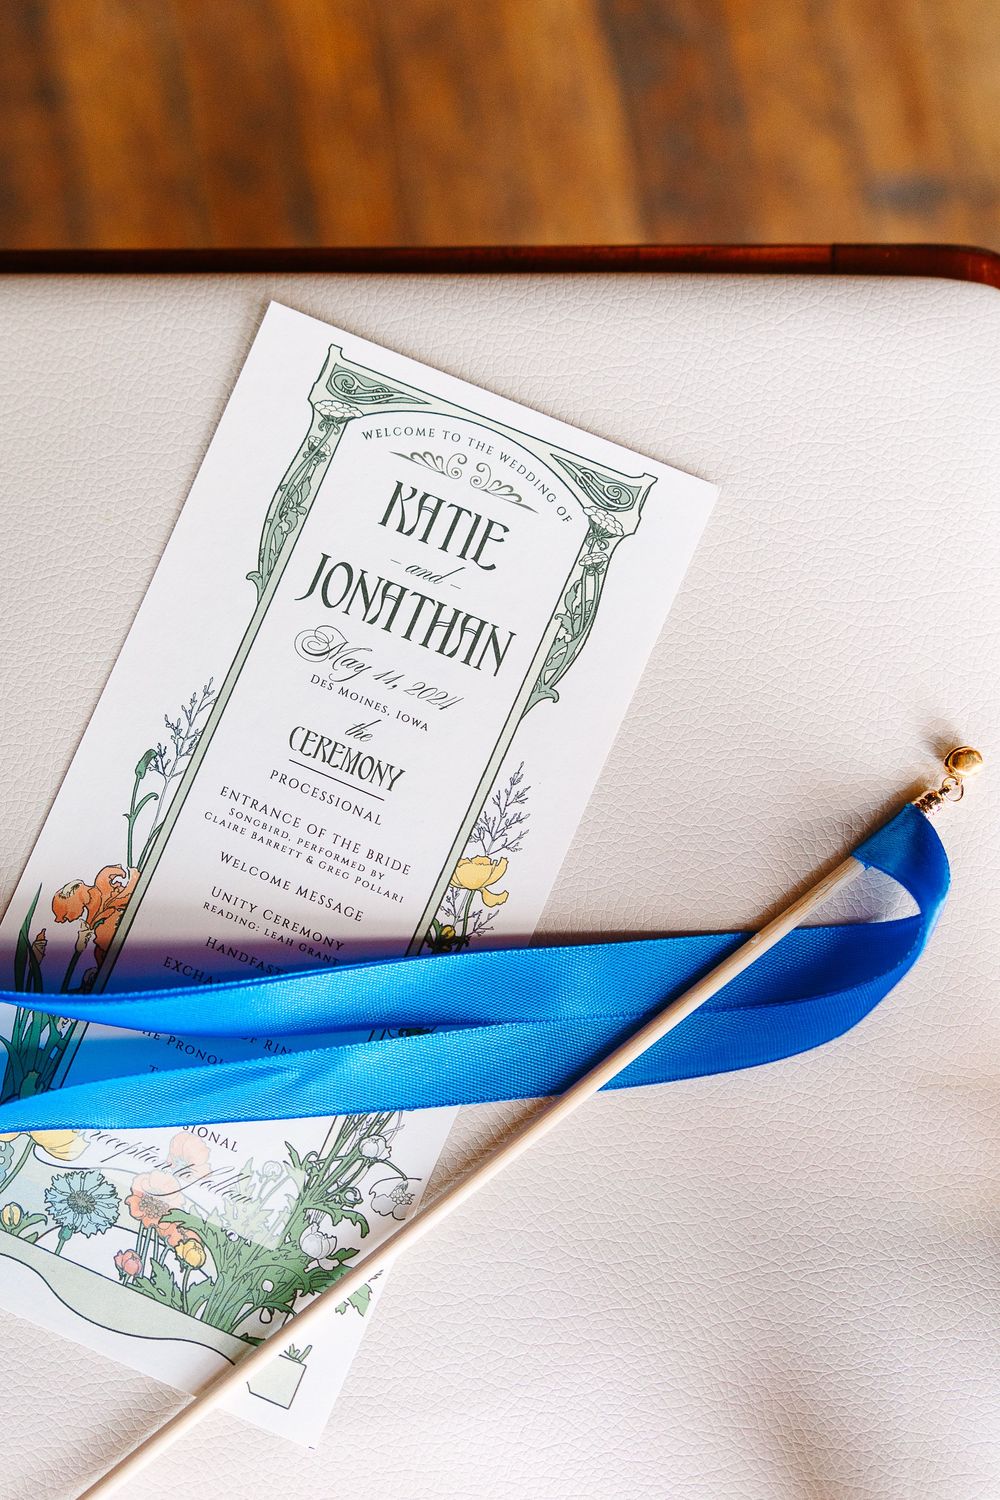 WELCOME TO THE WEDDING OF
KATIE
- and -
JONATHAN
May 11, 2024
DES MOINES, IOWA
the
CEREMONY
PROCESSIONAL
ENTRANCE OF THE BRIDE
SONGBIRD, PERFORMED BY
CLAIRE BARRETT & GREG POLLARI
WELCOME MESSAGE
UNITY CEREMONY
READING: LEAH GRANT
reception to follow